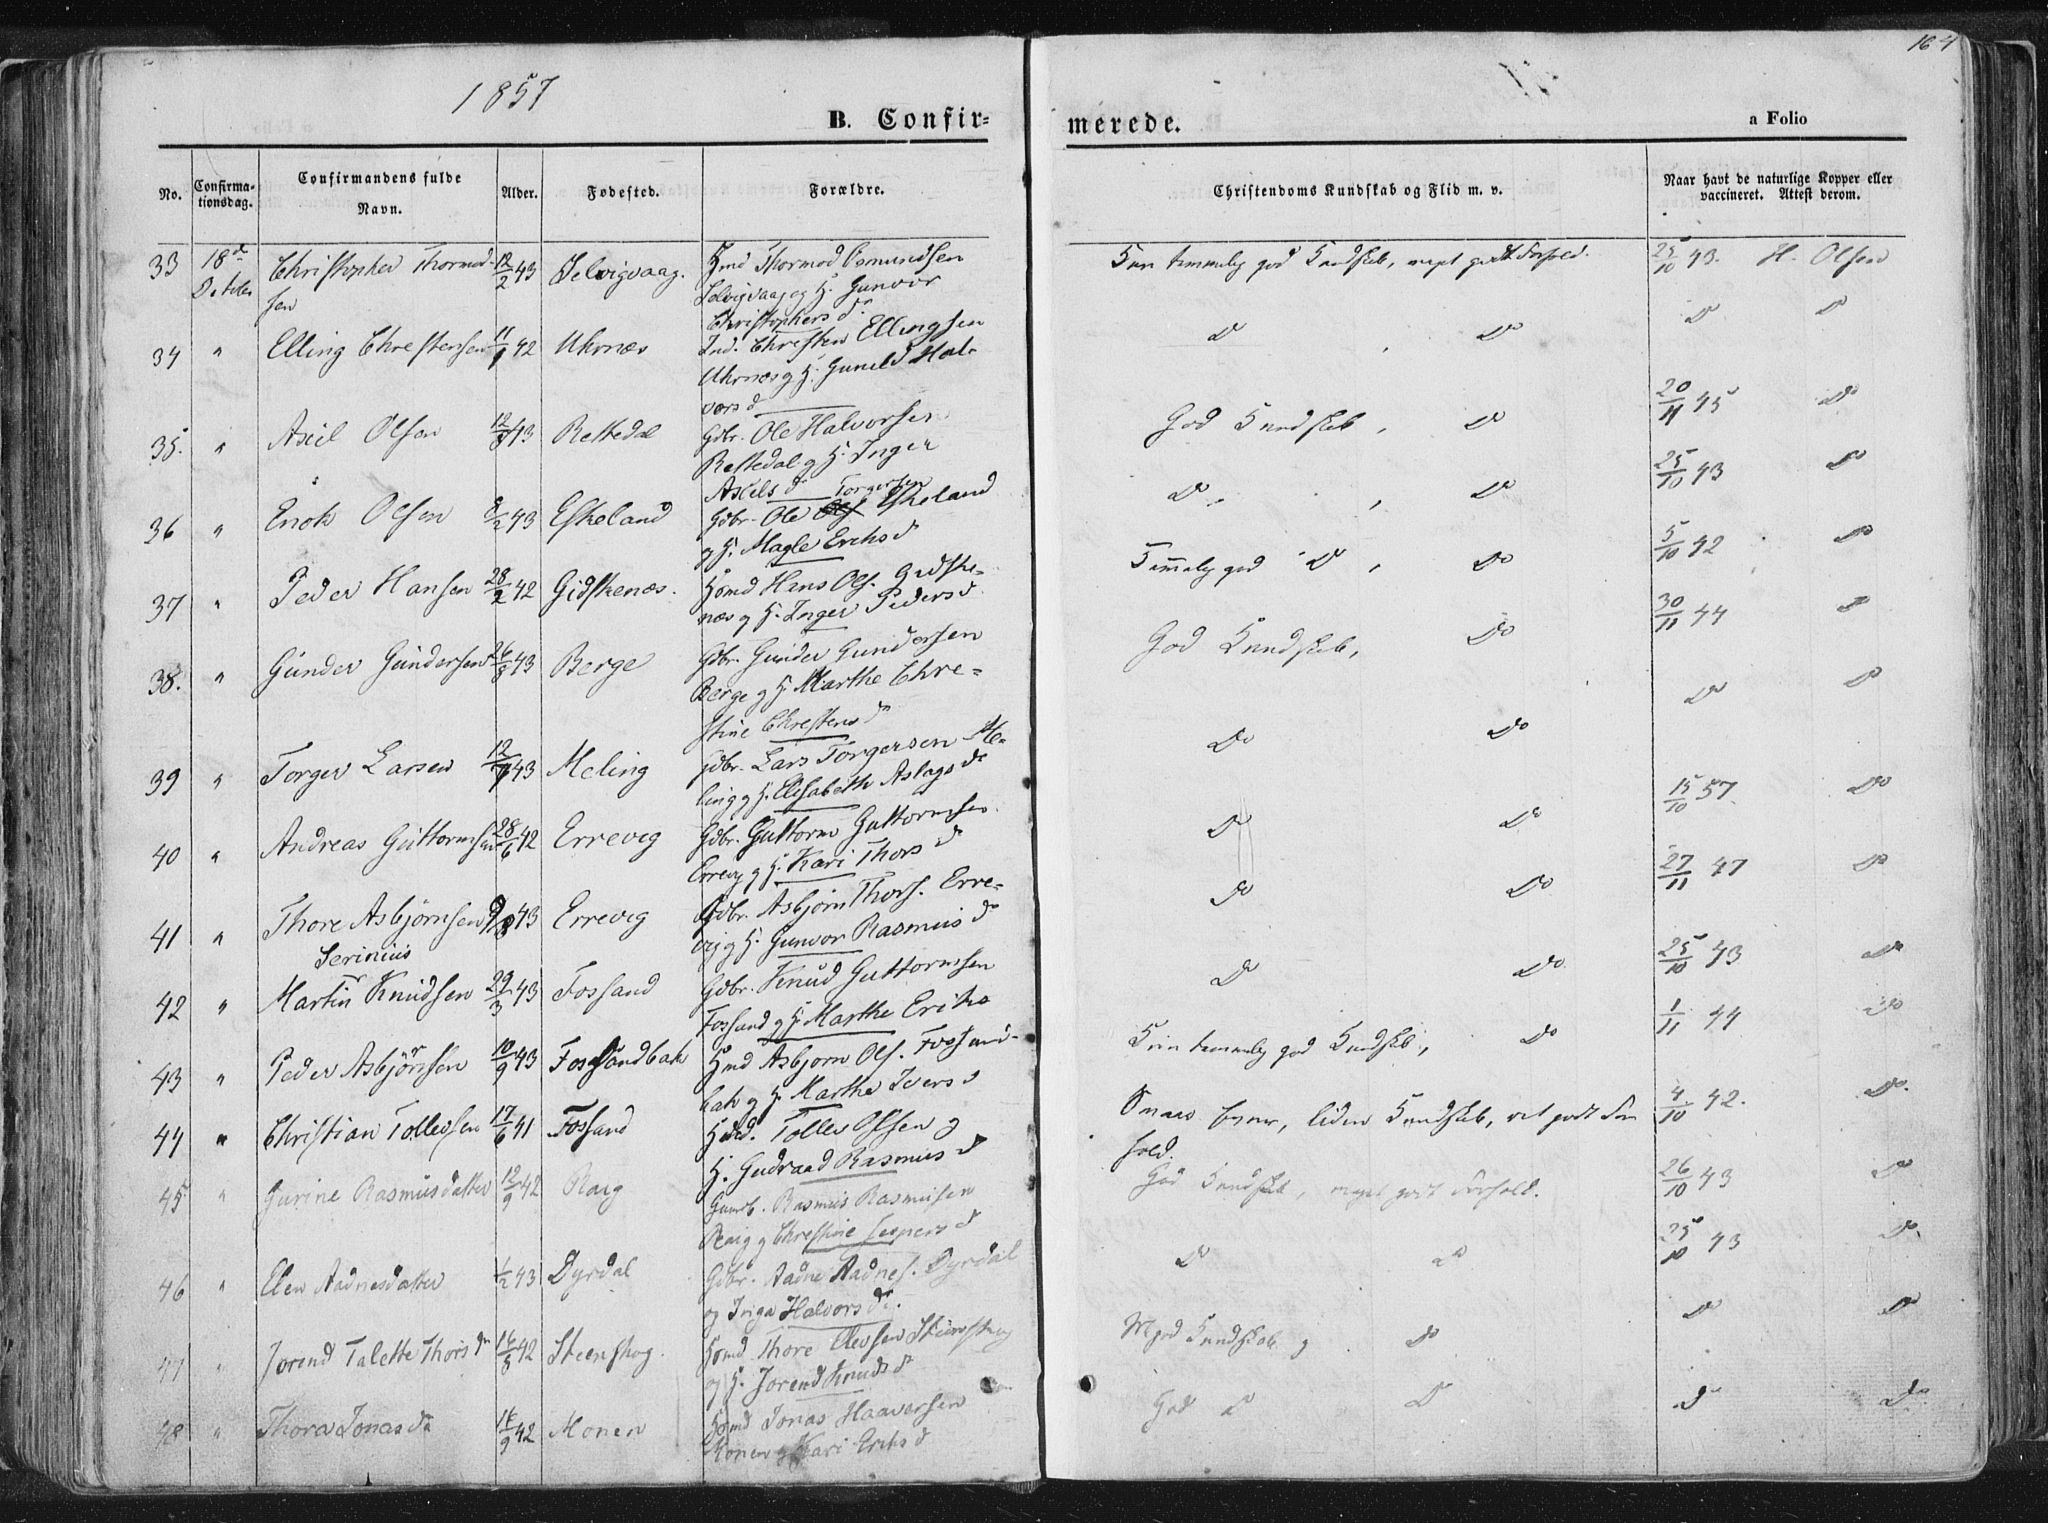 164
1857
B. Confir=
merede.
a Folio
No.
Confirma-
tionsdag.
Confirmandens fulde
Navn.
Alder.
Fødested.
Forældre.
Christendoms Kundskab og Flid m. v.
Naar havt de naturlige Kopper eller
vaccineret. Attest derom.
33 18de Christopher Thormod- 12/2 43 Selvigvaag. Hmd Thormod Osmundsen
October sen Selvigvaag og H. Gunvor
Christophersd.
Kun temmelig god Kundskab, meget godt Forhold. 25/10 43. H. Olsen
34 " Elling Christensen 42 Ukrnæs Ind. Christen Ellingsen
Ukrnæs og H. Gunild Hal-
vorsd
Do , Do Do Do
35. " Axel Olsen 12/8 43 Rettedal Gdbr. Ole Halvorsen
Rettedal og H. Inger
Axelsd
God Kundskab, Do 20/11 45 Do
36 " Enok Olsen 8/2 43 Eskeland Gdbr. Ole Torgersen Eskeland
og H. Magle Eriksd
Do , Do 25/10 43 Do
37 " Peder Hansen 28/2 42 Gidskenæs. Hmd Hans Ols. Gidske-
næs og H. Inger Pedersd
Temmelig god Do , Do 5/10 42 Do
38. " Gunder Gundersen 26/8 43 Berge Gdbr. Gunder Gundersen
Berge og H. Marthe Chre-
stine Chrestensd
God Kundskab, Do 30/11 44 Do
39 " Torger Larsen 12/7 43 Meling Gdbr. Lars Torgersen Me-
ling og H. Elisabeth Aslagsd
Do Do Do Do
40 " Andreas Guttormsen 28/6 42 Errevig Gdbr. Guttorm Guttormsen
Errevig og H. Kari Thorsd
Do Do 15/10 57. Do
41 " Thore Asbjörnsen 9/8 43 Errevig Gdbr. Asbjörn Thors. Erre-
Serinius vig og H. Gunvor Rasmusd
Do Do 27/11 47 Do
42 " Martin Knudsen 29/3 43 Fossand Gdbr. Knud Guttormsen
Fossand og H. Marthe Eriks
Do Do 25/10 43 Do
43 " Peder Asbjörnsen 10/9 43 Fossandbak Hmd Asbjorn Ols. Fossand-
bak og H. Marthe Iversd
Kun temmelig god Kundskab, Do 1/11 44 Do
44 " Christian Tollevsen 17/6 41 Fossand Tollev Olsen og
H. Gudraad Rasmusd
Svage Evner, liden Kundskab, ret godt For
hold. 4/10 42. Do
45 " Gurine Rasmusdatter 12/9 42 Raig Rasmus Rasmusen
Raig og Chrestine Jespersd
God Kundskab, meget godt Forhold. 26/10 43 Do
46 " Elen Aadnesdatter 1/2 43 Dyrdal Gdbr. Aadne Aadnes. Dyrdal
og Inga Halvorsd.
Do Do 25/10 43 Do
47 " Jorend Talette Thorsd 16/8 42 Steenskog. Hmd Thore Olevsen Steenskog
og H. Jorend Knudsd
Mgod Kundskab, Do Do Do
48 " Thora Jonasd 16/9 42 Monen Hmd Jonas Haavarsen
Monen og Kari Eriksd
God Do Do Do Do